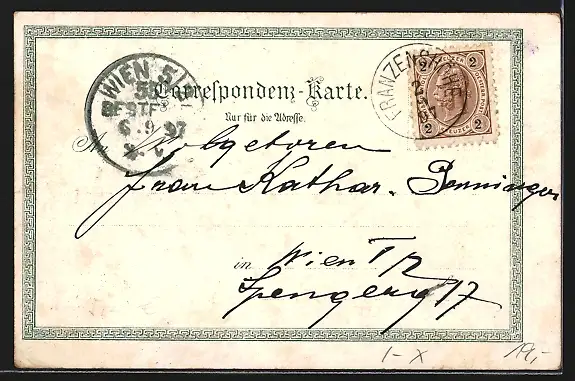 Correspondenz-Karte.
Nur für die Adresse.
WIEN 5/1
BESTELLT
6.9.97
FRANZENSFESTE
2 2
2 KREUZER 2
An Wolgeboren
Frau Kathar. Penninger
in Wien
Spengerg 17
1-X
19,-